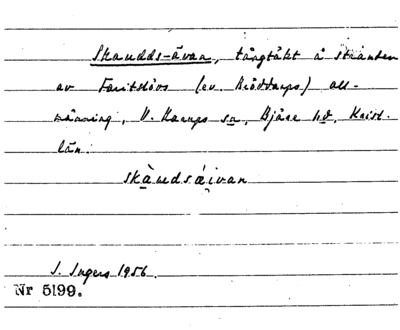 Skandds-åvan, tångtäkt å stranden
av Faritslövs (ev. Killeröds) all-
männing, V. Karups sn, Bjäre hd, Krist.
län.
skàndsáivan
I. Ingers 1956.
Nr 5199.